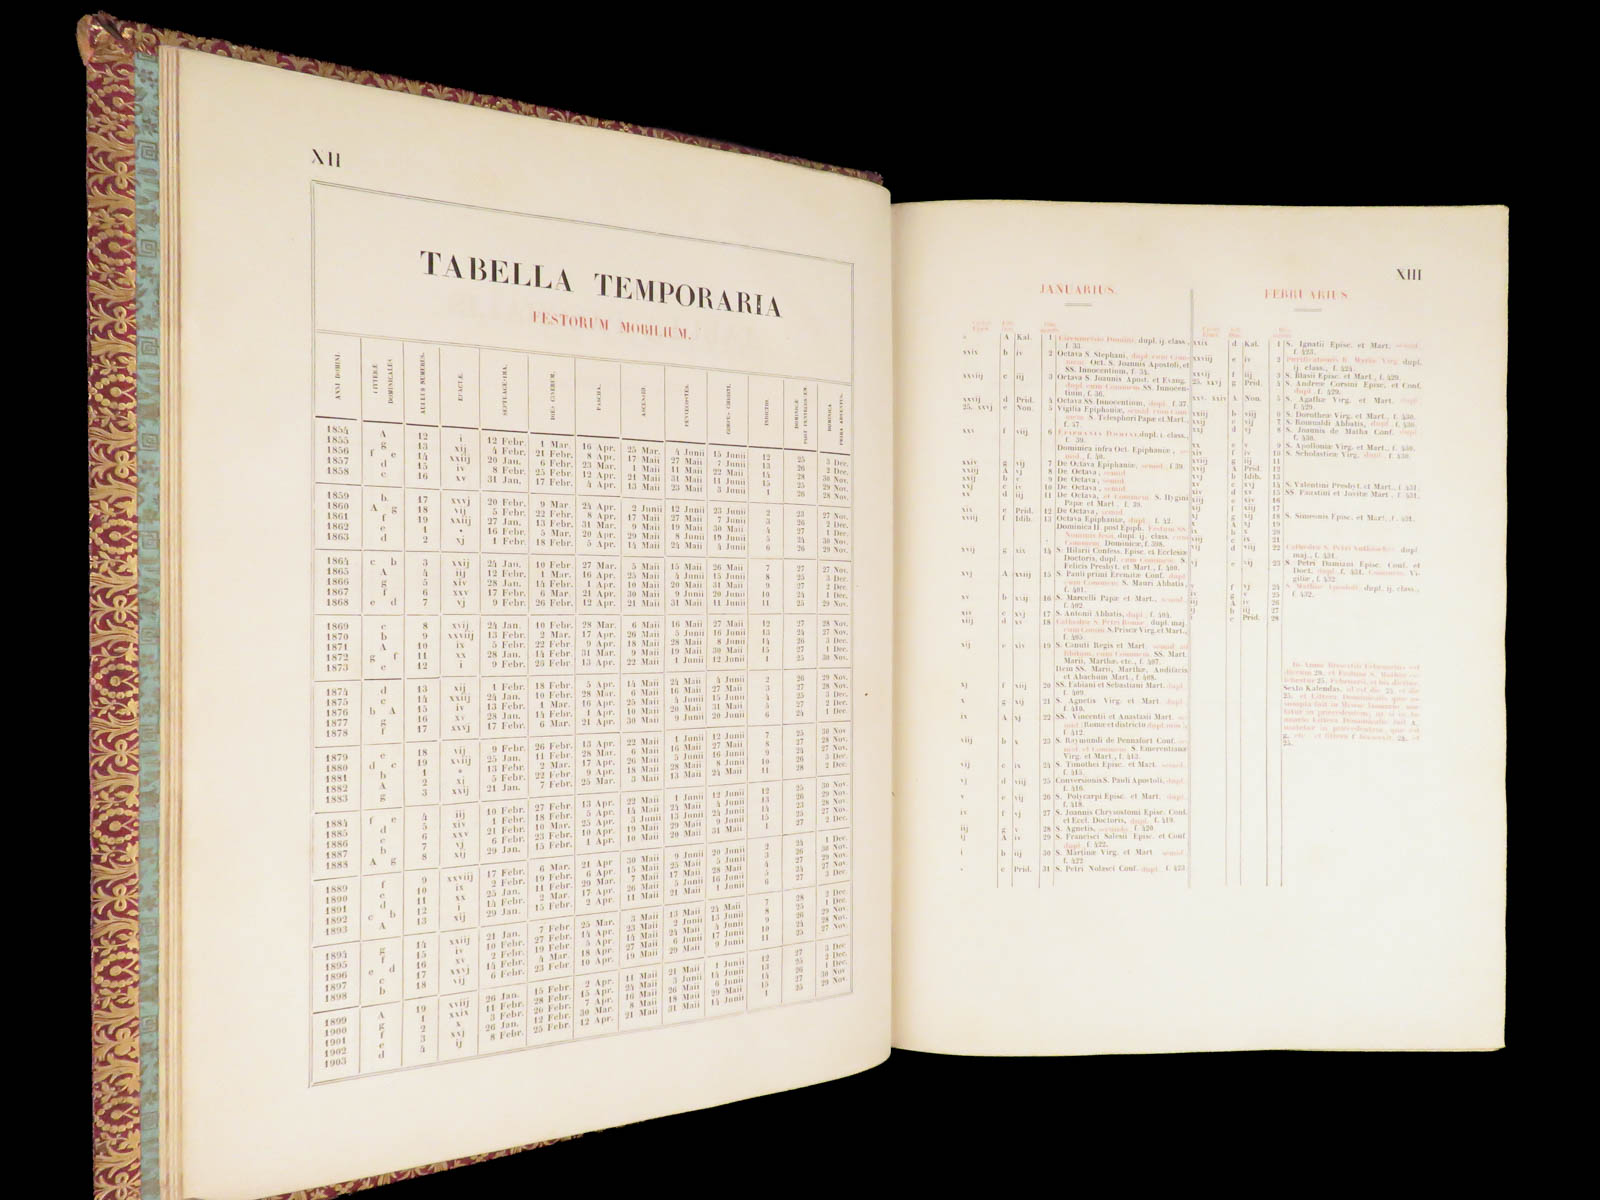 XII
TABELLA TEMPORARIA
FESTORUM MOBILIUM.
ANNI DOMINI. LITTERÆ DOMINICALES AUREUS NUMERUS. EPACTÆ. SEPTUAGESIMA. DIES CINERUM. PASCHA. ASCENSIO. PENTECOSTES. CORPUS CHRISTI. INDICTIO. DOMINICÆ POST PENTECOSTEN. DOMINICA PRIMA ADVENTUS.
1854 A 12 i 12 Febr. 1 Mar. 16 Apr. 25 Mar. 4 Junii 15 Junii 12 25 3 Dec.
1855 g 13 xij 4 Febr. 21 Febr. 8 Apr. 17 Maii 27 Maii 7 Junii 13 26 2 Dec.
1856 f e 14 xxiij 20 Jan. 6 Febr. 23 Mar. 1 Maii 11 Maii 22 Maii 14 28 30 Nov.
1857 d 15 iv 8 Febr. 25 Febr. 12 Apr. 21 Maii 31 Maii 11 Junii 15 25 29 Nov.
1858 c 16 xv 31 Jan. 17 Febr. 4 Apr. 13 Maii 23 Maii 3 Junii 1 26 28 Nov.
1859 b 17 xxvj 20 Febr. 9 Mar. 24 Apr. 2 Junii 12 Junii 23 Junii 2 23 27 Nov.
1860 A g 18 vij 5 Febr. 22 Febr. 8 Apr. 17 Maii 27 Maii 7 Junii 3 26 2 Dec.
1861 f 19 xxiij 27 Jan. 13 Febr. 31 Mar. 9 Maii 19 Maii 30 Maii 4 27 1 Dec.
1862 e 1 * 16 Febr. 5 Mar. 20 Apr. 29 Maii 8 Junii 19 Junii 5 24 30 Nov.
1863 d 2 xj 1 Febr. 18 Febr. 5 Apr. 14 Maii 24 Maii 4 Junii 6 26 29 Nov.
1864 c b 3 xxij 24 Jan. 10 Febr. 27 Mar. 5 Maii 15 Maii 26 Maii 7 27 27 Nov.
1865 A 4 iij 12 Febr. 1 Mar. 16 Apr. 25 Maii 4 Junii 15 Junii 8 25 3 Dec.
1866 g 5 xiv 28 Jan. 14 Febr. 1 Apr. 10 Maii 20 Maii 31 Maii 9 27 2 Dec.
1867 f 6 xxv 17 Febr. 6 Mar. 21 Apr. 30 Maii 9 Junii 20 Junii 10 24 1 Dec.
1868 e d 7 vj 9 Febr. 26 Febr. 12 Apr. 21 Maii 31 Maii 11 Junii 11 25 29 Nov.
1869 c 8 xvij 24 Jan. 10 Febr. 28 Mar. 6 Maii 16 Maii 27 Maii 12 27 28 Nov.
1870 b 9 xxviij 13 Febr. 2 Mar. 17 Apr. 26 Maii 5 Junii 16 Junii 13 24 27 Nov.
1871 A 10 ix 5 Febr. 22 Febr. 9 Apr. 18 Maii 28 Maii 8 Junii 14 26 3 Dec.
1872 g f 11 xx 28 Jan. 14 Febr. 31 Mar. 9 Maii 19 Maii 30 Maii 15 27 1 Dec.
1873 e 12 i 9 Febr. 26 Febr. 13 Apr. 22 Maii 1 Junii 12 Junii 1 25 30 Nov.
1874 d 13 xij 1 Febr. 18 Febr. 5 Apr. 14 Maii 24 Maii 4 Junii 2 26 29 Nov.
1875 c 14 xxiij 24 Jan. 10 Febr. 28 Mar. 6 Maii 16 Maii 27 Maii 3 27 28 Nov.
1876 b A 15 iv 13 Febr. 1 Mar. 16 Apr. 25 Maii 4 Junii 15 Junii 4 25 3 Dec.
1877 g 16 xv 28 Jan. 14 Febr. 1 Apr. 10 Maii 20 Maii 31 Maii 5 27 2 Dec.
1878 f 17 xxvj 17 Febr. 6 Mar. 21 Apr. 30 Maii 9 Junii 20 Junii 6 24 1 Dec.
1879 e 18 vij 9 Febr. 26 Febr. 13 Apr. 22 Maii 1 Junii 12 Junii 7 25 30 Nov
1880 d c 19 xxiij 25 Jan. 11 Febr. 28 Mar. 6 Maii 16 Maii 27 Maii 8 27 28 Nov.
1881 b 1 * 13 Febr. 2 Mar. 17 Apr. 26 Maii 5 Junii 16 Junii 9 24 27 Nov.
1882 A 2 xj 5 Febr. 22 Febr. 9 Apr. 18 Maii 28 Maii 8 Junii 10 26 3 Dec.
1883 g 3 xxij 21 Jan. 7 Febr. 25 Mar. 3 Maii 13 Maii 24 Maii 11 28 2 Dec.
1884 f e 4 iij 10 Febr. 27 Febr. 13 Apr. 22 Maii 1 Junii 12 Junii 12 25 30 Nov.
1885 d 5 xiv 1 Febr. 18 Febr. 5 Apr. 14 Maii 24 Maii 4 Junii 13 26 29 Nov.
1886 c 6 xxv 21 Febr. 10 Mar. 25 Apr. 3 Junii 13 Junii 24 Junii 14 23 28 Nov.
1887 b 7 vj 6 Febr. 23 Febr. 10 Apr. 19 Maii 29 Maii 9 Junii 15 25 27 Nov.
1888 A g 8 xij 29 Jan. 15 Febr. 1 Apr. 10 Maii 20 Maii 31 Maii 1 27 2 Dec.
1889 f 9 xxviij 17 Febr. 6 Mar. 21 Apr 30 Maii 9 Junii 20 Junii 2 24 1 Dec.
1890 e 10 ix 2 Febr. 19 Febr. 6 Apr. 15 Maii 25 Maii 5 Junii 3 26 30 Nov.
1891 d 11 xx 25 Jan. 11 Febr. 29 Mar. 7 Maii 17 Maii 28 Maii 4 27 29 Nov.
1892 c b 12 i 14 Febr. 2 Mar. 17 Apr. 26 Maii 5 Junii 16 Junii 5 24 27 Nov.
1893 A 13 xij 29 Jan. 15 Febr. 2 Apr. 11 Maii 21 Maii 1 Junii 6 27 3 Dec.
1894 g 14 xxiij 21 Jan. 7 Febr. 25 Mar. 3 Maii 13 Maii 24 Maii 7 28 2 Dec.
1895 f 15 iv 10 Febr. 27 Febr. 14 Apr. 23 Maii 2 Junii 13 Junii 8 25 1 Dec.
1896 e d 16 xv 2 Febr. 19 Febr. 5 Apr. 14 Maii 24 Maii 4 Junii 9 26 29 Nov.
1897 c 17 xxvj 14 Febr. 4 Mar. 18 Apr. 27 Maii 6 Junii 17 Junii 10 24 28 Nov.
1898 b 18 vij 6 Febr. 23 Febr. 10 Apr. 19 Maii 29 Maii 9 Junii 11 25 27 Nov.
1899 A 19 xviij 26 Jan. 15 Febr. 2 Apr. 11 Maii 21 Maii 1 Junii 12 27 3 Dec
1900 g 1 xxix 11 Febr. 28 Febr. 15 Apr. 24 Maii 3 Junii 14 Junii 13 25 2 Dec.
1901 f 2 x 3 Febr. 20 Febr. 7 Apr. 16 Maii 26 Maii 6 Junii 14 26 1 Dec.
1902 e 3 xxj 26 Jan. 12 Febr. 30 Mar. 8 Maii 18 Maii 29 Maii 15 27 30 Nov
1903 d 4 ij 8 Febr. 25 Febr. 12 Apr. 21 Maii 31 Maii 11 Junii 1 25 29 Nov.
XIII
JANUARIUS.
A Kal. 1 Circumcisio Domini, dupl. ij. class., f. 33.
xxix b iv 2 Octava S. Stephani, dupl. cum Commem. Oct. S. Joannis Apostoli, et
SS. Innocentium, f. 34.
xxviij c iij 3 Octava S Joannis Apost. et Evang.
dupl. cum Commem SS. Innocentium, f. 36.
xxvij d Prid. 4 Octava SS Innocentium, dupl. f. 37
25. xxvj e Non. 5 Vigilia Epiphaniæ, semid. cum Commem. S. Telesphori Papæ et Mart.,
f. 37.
xxv f viij 6 EPIPHANIA DOMINI, dupl. i. class.,
f. 39.
Dominica infra Oct. Epiphaniæ, semid., f. 40.
xxiv g vij 7 De Octava Epiphaniæ, semid. f. 39.
xxiij A vj 8 De Octava, semid.
xxij b v 9 De Octava, semid.
xxj c iv 10 De Octava, semid.
xx d iij 11 De Octava, et Commem. S. Hygini
Papæ et Mart., f. 39.
xix e Prid. 12 De Octava, semid.
xviij f Idib. 13 Octava Epiphaniæ, dupl. f. 42.
Dominica II. post Epiph. Festum SS.
Nominis Jesu, dupl. ij. class. cum
Commem. Dominicæ, f. 398.
xvij g xix 14 S. Hilarii Confess. Episc. et Ecclesiæ
Doctoris, dupl. cum Commem. S.
Felicis Presbyt. et Mart., f. 400.
xvj A xviij 15 S. Pauli primi Eremitæ Conf. dupl.
cum Commem. S. Mauri Abbatis,
f. 401.
xv b xvij 16 S. Marcelli Papæ et Mart., semid.
f. 402.
xiv c xvj 17 S. Antonii Abbatis, dupl. f. 404.
xiij d xv 18 Cathedræ S. Petri Romæ, dupl. maj.
cum Comm. S. Priscæ Virg. et Mart.,
f. 405.
xij e xiv 19 S. Canuti Regis et Mart. semid. ad
libitum, cum Commem. SS. Mart.
Marii, Marthæ, etc., f. 407.
Item SS. Marii, Marthæ, Audifacis
et Abachum Mart., f. 408.
xj f xiij 20 SS. Fabiani et Sebastiani Mart. dupl.
f. 409.
x g xij 21 S. Agnetis Virg. et Mart. dupl.
f. 410.
ix A xj 22 SS. Vincentii et Anastasii Mart. semid. Romæ et districtu dupl.
f. 412.
viij b x 23 S. Raymondi de Pennafort Conf. semid. et Commem. S. Emerentianæ
Virg. et Mart., f. 413.
vij c ix 24 S. Timothei Episc. et Mart. semid.
f. 415.
vj d viij 25 Conversionis S. Pauli Apostoli, dupl.
f. 416.
v e vij 26 S. Polycarpi Episc. et Mart. dupl.
f. 418.
iv f vj 27 S. Joannis Chrysostomi Episc. Conf.
et Eccl. Doctoris, dupl. f. 419.
iij g v 28 S. Agnetis, secundo, f. 420
ij A iv 29 S. Francisci Salesii Episc. et Conf
dupl. f. 422.
i b iij 30 S. Martinæ Virg. et Mart semid.
f. 422
c Prid. 31 S. Petri Nolasci Conf. dupl. f. 423
FEBRUARIUS
xxix d Kal. 1 S. Ignatii Episc. et Mart. semid.
f. 423.
xxviij e iv 2 Purificationis B. Mariæ Virg. dupl.
ij. class., f. 424.
xxvij f iij 3 S. Blasii Episc. et Mart., f. 429.
25. xxvj g Prid. 4 S. Andreæ Corsini Episc. et Conf.
dupl. f. 429.
xxv. xxiv A Non. 5 S. Agathæ Virg. et Mart. dupl.
f. 429.
xxiij b viij 6 S. Dorotheæ Virg. et Mart., f. 430.
xxij c vij 7 S. Romualdi Abbatis, dupl. f. 430.
xxj d vj 8 S. Joannis de Matha Conf. dupl.
f. 430.
xx e v 9 S. Apolloniæ Virg. et Mart., f. 430.
xix f iv 10 S. Scholasticæ Virg. dupl. f. 430.
xviij g iij 11
xvij A Prid. 12
xvj b Idib. 13
xv c xvj 14 S. Valentini Presbyt. et Mart., f. 431.
xiv d xv 15 SS Faustini et Jovitæ Mart., f. 431.
xiij e xiv 16
xij f xiij 17
xj g xij 18 S. Simeonis Episc. et Mart., f. 431.
x A xj 19
ix b x 20
viij c ix 21
vij d viij 22 Cathedræ S. Petri Antiochiæ, dupl.
maj., f. 431.
vj e vij 23 S. Petri Damiani Episc. Conf. et
Doct. dupl. f. 431. Commem. Vigiliæ, f. 432
v f vj 24 S. Mathiæ Apostoli, dupl. ij. class.,
f. 432.
g v 25
iij A iv 26
ij b iij 27
c Prid. 28
In Anno Bissextili Februarius est
dierum 29. et Festum S. Mathiæ celebratur 25. Februarii, et bis dicitur
Sexto Kalendas, id est die 24. et die
25.